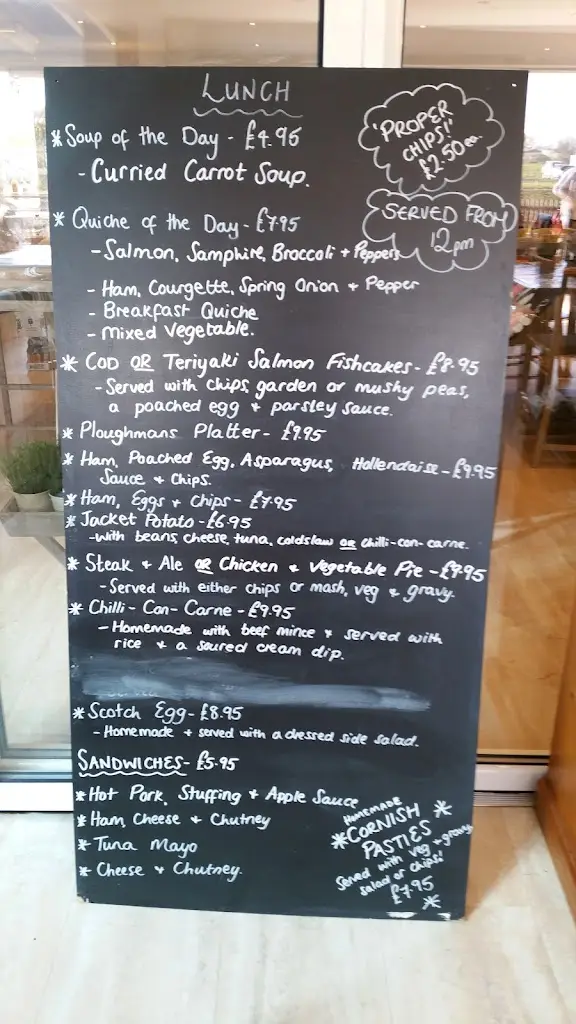 LUNCH
*Soup of the Day - £4.95
- Curried Carrot Soup.
'PROPER
CHIPS!'
£2.50 ea.
SERVED FROM
12pm
* Quiche of the Day - £7.95
- Salmon, Samphire, Broccoli + Peppers
- Ham, Courgette, Spring Onion + Pepper
- Breakfast Quiche
- Mixed Vegetable.
* COD OR Teriyaki Salmon Fishcakes - £8.95
- Served with chips, garden or mushy peas,
a poached egg + parsley sauce.
* Ploughmans Platter - £9.95
* Ham, Poached Egg, Asparagus, Hollendaise - £9.95
Sauce + Chips.
* Ham, Eggs + Chips - £7.95
* Jacket Potato - £6.95
- with beans, cheese, tuna, coldslaw OR chilli-con-carne.
* Steak + Ale OR Chicken + Vegetable Pie - £9.95
- Served with either chips or mash, veg + gravy.
* Chilli-Con-Carne - £9.95
- Homemade with beef mince + served with
rice + a soured cream dip.
* Scotch Egg - £8.95
- Homemade + served with a dressed side salad.
SANDWICHES - £5.95
* Hot Pork, Stuffing + Apple Sauce
* Ham, Cheese + Chutney
* Tuna Mayo
* Cheese + Chutney.
HOMEMADE
*CORNISH *
PASTIES
Served with veg + gravy
salad or chips!
£7.95
*